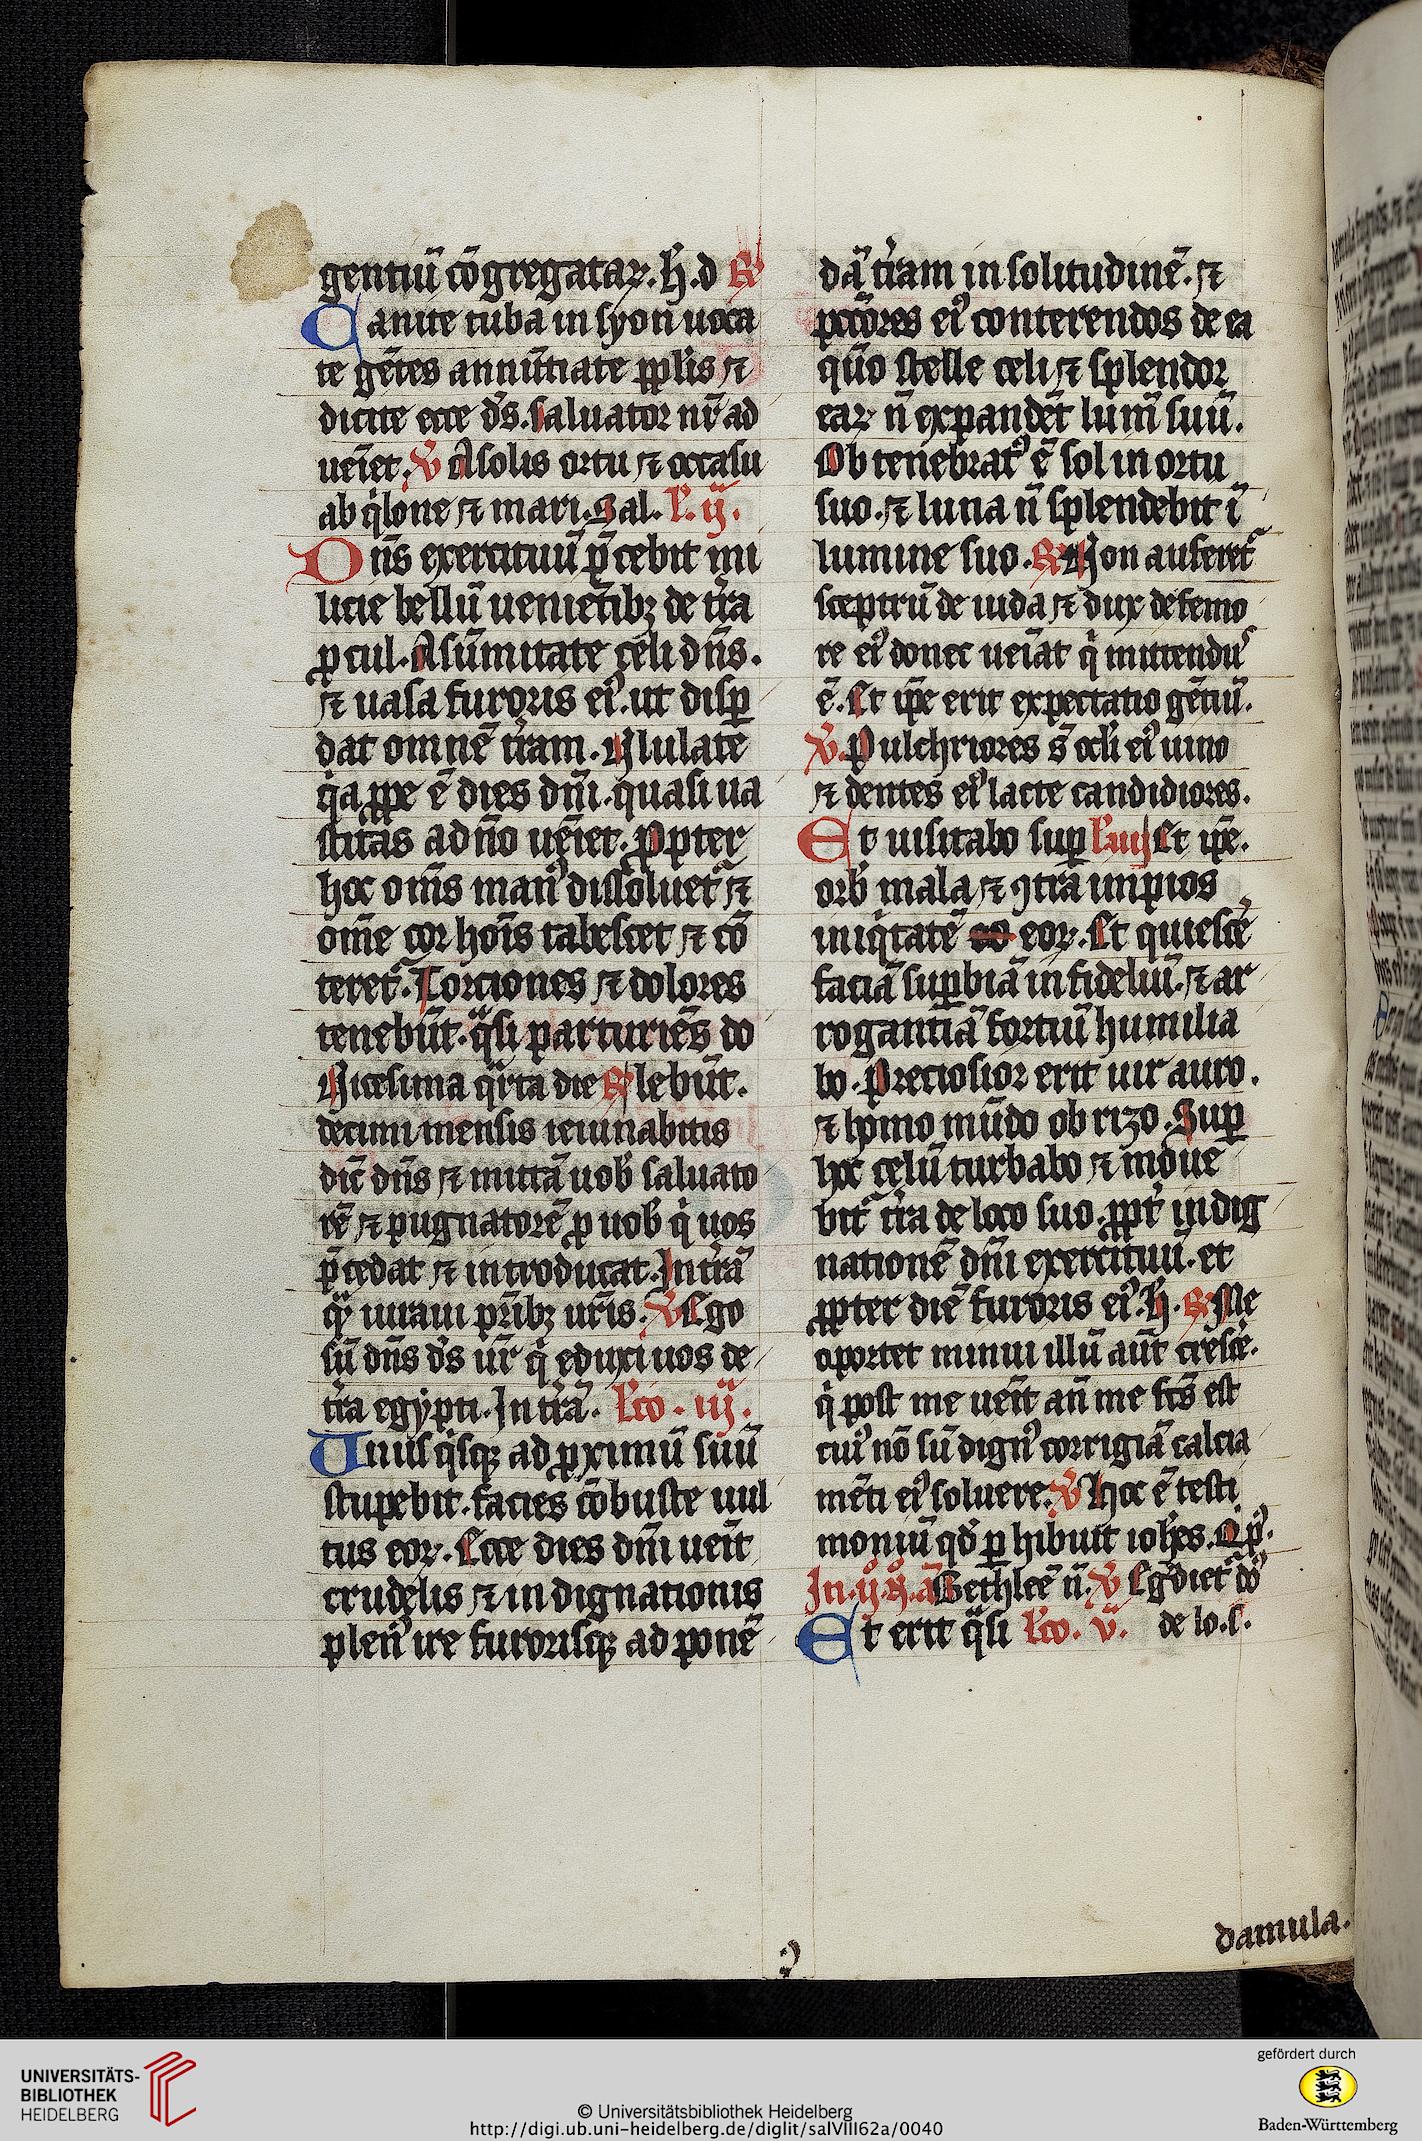 gentiū cōgregataꝝ. h̄. d ℟
Canite tuba in syon uoca
te gētes annūtiate ppl̄is ⁊
dicite ecce d̄s. saluator nr̄ ad
ueīet. ℣ A solis ortu ⁊ occasu
ab qͥlone ⁊ mari. Sal. L̄. ij.
Dn̄s exercituū p̄cebit mi
licie bellū uenietībꝫ de tr̄a
ꝓcul. A sūmitate celi dn̄s.
⁊ uasa furoris eiꝰ. ut disꝑ
dat omnē tr̄am. Ululate
qͥa ꝓpe ē dies dn̄i. quasi ua
stitas ad nō uēiet. Propter
hoc oms̄ manꝰ dissoluet᷑ ⁊
om̄e cor hoīs tabescet ⁊ cō
teret᷑. Torciones ⁊ dolores
tenebūt. qͣsi parturiēs do
Uicesima qͣrta die ℟ lebūt.
decimi mensis ieiunabitis
dic̄ dn̄s ⁊ mittā uob̄ saluato
rē ⁊ pugnatorē ꝓ uob̄ qͥ uos
p̄cedat ⁊ introducat. In tr̄ā
qͣꝫ iuraui pr̄ibꝫ ur̄is. ℣ Ego
sū dn̄s d̄s ur̄ qͥ eduxi uos de
tr̄a egypti. In tr̄ā. Lc̄o. iij.
Unusqͥsqꝫ ad ꝓximū suū
stupebit. facies cōbuste uul
tus eoꝝ. Ecce dies dn̄i ueīt
crudelis ⁊ indignationis
plenꝰ ire furorisqꝫ ad ponē
dā tr̄am in solitudinē. ⁊
pctōres eiꝰ conterendos de ea
qūo stelle celi ⁊ splendor
eaꝝ n̄ expandēt lum̄ suū.
Obtenebratꝰ ē sol in ortu
suo. ⁊ luna n̄ splendebit ī
lumine suo. ℟ Non auferet᷑
sceptrū de iuda ⁊ dux de femo
re eiꝰ donec ueīat qͥ mittendꝰ
ē. Et ip̄e erit expectatio gētiū.
℣. Pulchriores s̄ ocl̄i eiꝰ uino
⁊ dentes eiꝰ lacte candidiores.
Et uisitabo suꝑ L̄. iiij Et ip̄e.
orb̄ mala ⁊ ꝯtra impios
iniqͥtatē eo eoꝝ. Et quiesc̄e
faciā suꝑbiā infideliū. ⁊ ar
rogantiā fortiū humilia
bo. Preciosior erit uir auro.
⁊ homo mūdo obrizo. Suꝑ
hoc celū turbabo ⁊ moue
bit᷑ tr̄a de loco suo. ꝓpt̄ indig
nationē dn̄i exercituū. et
ꝓpter diē furoris eiꝰ. h̄. ℟ Me
oportet minui illū aut̄ cresc̄e.
qͥ post me ueīt an̄ me fc̄s est
cuiꝰ nō sū dignꝰ corrigiā calcia
mēti eiꝰ soluere. ℣ Hoc ē testi
moniū qd̄ ꝑhibuit ioh̄es. Q. p̄.
In. ij. N̄. a Bethleē n̄. ℣ Egͣdiet᷑ dō
Et erit qͣsi Lc̄o. v. de lo. s.
damula.
UNIVERSITÄTS-
BIBLIOTHEK
HEIDELBERG
© Universitätsbibliothek Heidelberg
http://digi.ub.uni-heidelberg.de/diglit/salVIII62a/0040
gefördert durch
Baden-Württemberg